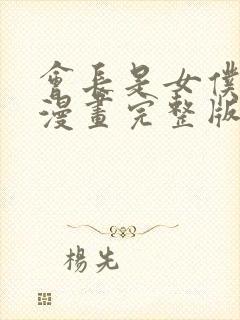 會長是女僕
漫畫完整版
楊先